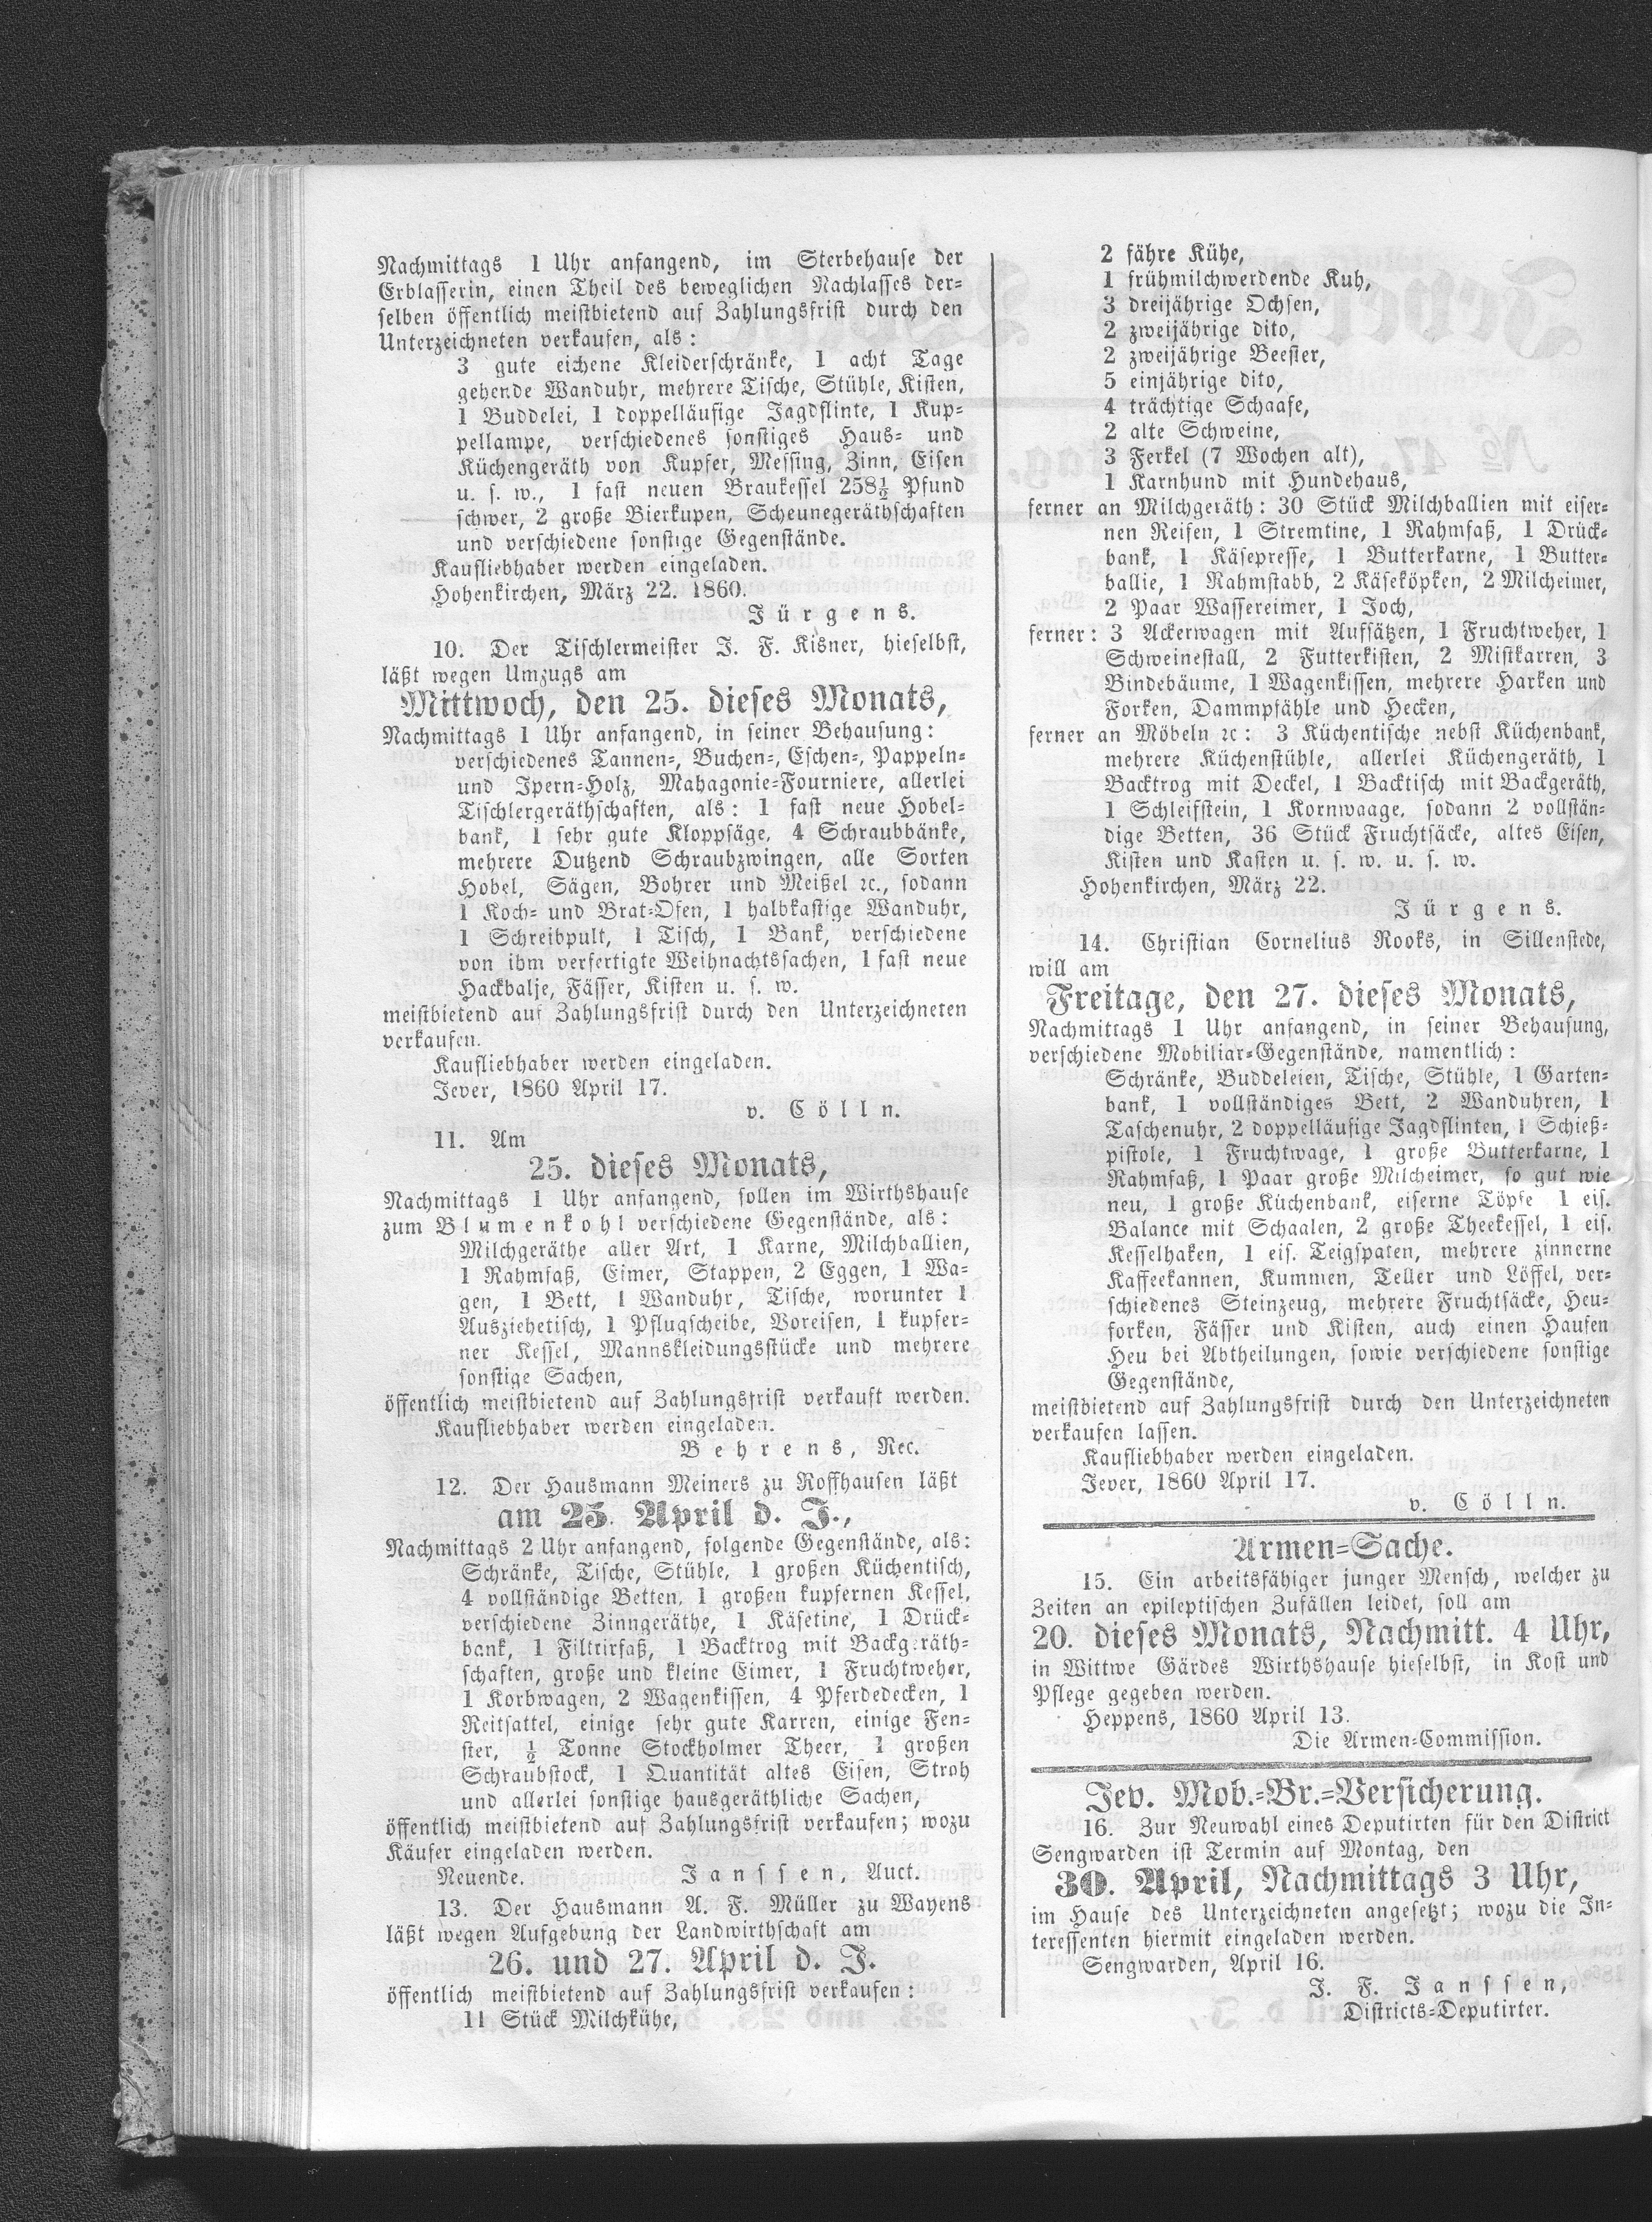 Nachmittags 1 Uhr anfangend, im Sterbehause der
Erblasserin, einen Theil des beweglichen Nachlasses der-
selben öffentlich meistbietend auf Zahlungsfrist durch den
Unterzeichneten verkaufen, als:
3 gute eichene Kleiderschränke, 1 acht Tage
gehende Wanduhr, mehrere Tische, Stühle, Kisten,
1 Buddelei, 1 doppelläufige Jagdflinte, 1 Kup-
pellampe, verschiedenes sonstiges Haus- und
Küchengeräth von Kupfer, Messing, Zinn, Eisen
u. s. w., 1 fast neuen Braukessel 258½ Pfund
schwer, 2 große Bierkupen, Scheunegeräthschaften
und verschiedene sonstige Gegenstände.
Kaufliebhaber werden eingeladen.
Hohenkirchen, März 22. 1860.
Jürgens.
10. Der Tischlermeister J. F. Kisner, hieselbst,
läßt wegen Umzugs am
Mittwoch, den 25. dieses Monats,
Nachmittags 1 Uhr anfangend, in seiner Behausung:
verschiedenes Tannen-, Buchen-, Eschen-, Pappeln-
und Ipern-Holz, Mahagonie-Fourniere, allerlei
Tischlergeräthschaften, als: 1 fast neue Hobel-
bank, 1 sehr gute Kloppsäge, 4 Schraubbänke,
mehrere Dutzend Schraubzwingen, alle Sorten
Hobel, Sägen, Bohrer und Meißel ꝛc., sodann
1 Koch- und Brat-Ofen, 1 halbkastige Wanduhr,
1 Schreibpult, 1 Tisch, 1 Bank, verschiedene
von ihm verfertigte Weihnachtssachen, 1 fast neue
Hackbalje, Fässer, Kisten u. s. w.
meistbietend auf Zahlungsfrist durch den Unterzeichneten
verkaufen.
Kaufliebhaber werden eingeladen.
Jever, 1860 April 17.
v. Cölln.
11. Am
25. dieses Monats,
Nachmittags 1 Uhr anfangend, sollen im Wirthshause
zum Blumenkohl verschiedene Gegenstände, als:
Milchgeräthe aller Art, 1 Karne, Milchballien,
1 Rahmfaß, Eimer, Stappen, 2 Eggen, 1 Wa-
gen, 1 Bett, 1 Wanduhr, Tische, worunter 1
Ausziehetisch, 1 Pflugscheibe, Voreisen, 1 kupfer-
ner Kessel, Mannskleidungsstücke und mehrere
sonstige Sachen,
öffentlich meistbietend auf Zahlungsfrist verkauft werden.
Kaufliebhaber werden eingeladen.
Behrens, Rec.
12. Der Hausmann Meiners zu Roffhausen läßt
am 25. April d. J.,
Nachmittags 2 Uhr anfangend, folgende Gegenstände, als:
Schränke, Tische, Stühle, 1 großen Küchentisch,
4 vollständige Betten, 1 großen kupfernen Kessel,
verschiedene Zinngeräthe, 1 Käsetine, 1 Drück-
bank, 1 Filtrirfaß, 1 Backtrog mit Backgeräth-
schaften, große und kleine Eimer, 1 Fruchtweher,
1 Korbwagen, 2 Wagenkissen, 4 Pferdedecken, 1
Reitsattel, einige sehr gute Karren, einige Fen-
ster, ½ Tonne Stockholmer Theer, 1 großen
Schraubstock, 1 Quantität altes Eisen, Stroh
und allerlei sonstige hausgeräthliche Sachen,
öffentlich meistbietend auf Zahlungsfrist verkaufen; wozu
Käufer eingeladen werden.
Neuende. Janssen, Auct.
13. Der Hausmann A. F. Müller zu Wayens
läßt wegen Aufgebung der Landwirthschaft am
26. und 27. April d. J.
öffentlich meistbietend auf Zahlungsfrist verkaufen:
11 Stück Milchkühe,
2 fähre Kühe,
1 frühmilchwerdende Kuh,
3 dreijährige Ochsen,
2 zweijährige dito,
2 zweijährige Beester,
5 einjährige dito,
4 trächtige Schaafe,
2 alte Schweine,
3 Ferkel (7 Wochen alt),
1 Karnhund mit Hundehaus,
ferner an Milchgeräth: 30 Stück Milchballien mit eiser-
nen Reifen, 1 Stremtine, 1 Rahmfaß, 1 Drück-
bank, 1 Käsepresse, 1 Butterkarne, 1 Butter-
ballie, 1 Rahmstabb, 2 Käseköpken, 2 Milcheimer,
2 Paar Wassereimer, 1 Joch,
ferner: 3 Ackerwagen mit Aufsätzen, 1 Fruchtweher, 1
Schweinestall, 2 Futterkisten, 2 Mistkarren, 3
Bindebäume, 1 Wagenkissen, mehrere Harken und
Forken, Dammpfähle und Hecken,
ferner an Möbeln ꝛc: 3 Küchentische nebst Küchenbank,
mehrere Küchenstühle, allerlei Küchengeräth, 1
Backtrog mit Deckel, 1 Backtisch mit Backgeräth,
1 Schleifstein, 1 Kornwaage, sodann 2 vollstän-
dige Betten, 36 Stück Fruchtsäcke, altes Eisen,
Kisten und Kasten u. s. w. u. s. w.
Hohenkirchen, März 22.
Jürgens.
14. Christian Cornelius Rooks, in Sillenstede,
will am
Freitage, den 27. dieses Monats,
Nachmittags 1 Uhr anfangend, in seiner Behausung,
verschiedene Mobiliar-Gegenstände, namentlich:
Schränke, Buddeleien, Tische, Stühle, 1 Garten-
bank, 1 vollständiges Bett, 2 Wanduhren, 1
Taschenuhr, 2 doppelläufige Jagdflinten, 1 Schieß-
pistole, 1 Fruchtwage, 1 große Butterkarne, 1
Rahmfaß, 1 Paar große Milcheimer, so gut wie
neu, 1 große Küchenbank, eiserne Töpfe 1 eis.
Balance mit Schaalen, 2 große Theekessel, 1 eis.
Kesselhaken, 1 eis. Teigspaten, mehrere zinnerne
Kaffeekannen, Kummen, Teller und Löffel, ver-
schiedenes Steinzeug, mehrere Fruchtsäcke, Heu-
forken, Fässer und Kisten, auch einen Haufen
Heu bei Abtheilungen, sowie verschiedene sonstige
Gegenstände,
meistbietend auf Zahlungsfrist durch den Unterzeichneten
verkaufen lassen.
Kaufliebhaber werden eingeladen.
Jever, 1860 April 17.
v. Cölln.
Armen-Sache.
15. Ein arbeitsfähiger junger Mensch, welcher zu
Zeiten an epileptischen Zufällen leidet, soll am
20. dieses Monats, Nachmitt. 4 Uhr,
in Wittwe Gärdes Wirthshause hieselbst, in Kost und
Pflege gegeben werden.
Heppens, 1860 April 13.
Die Armen-Commission.
Jev. Mob.-Br.-Versicherung.
16. Zur Neuwahl eines Deputirten für den District
Sengwarden ist Termin auf Montag, den
30. April, Nachmittags 3 Uhr,
im Hause des Unterzeichneten angesetzt; wozu die In-
teressenten hiermit eingeladen werden.
Sengwarden, April 16.
J. F. Janssen,
Districts-Deputirter.